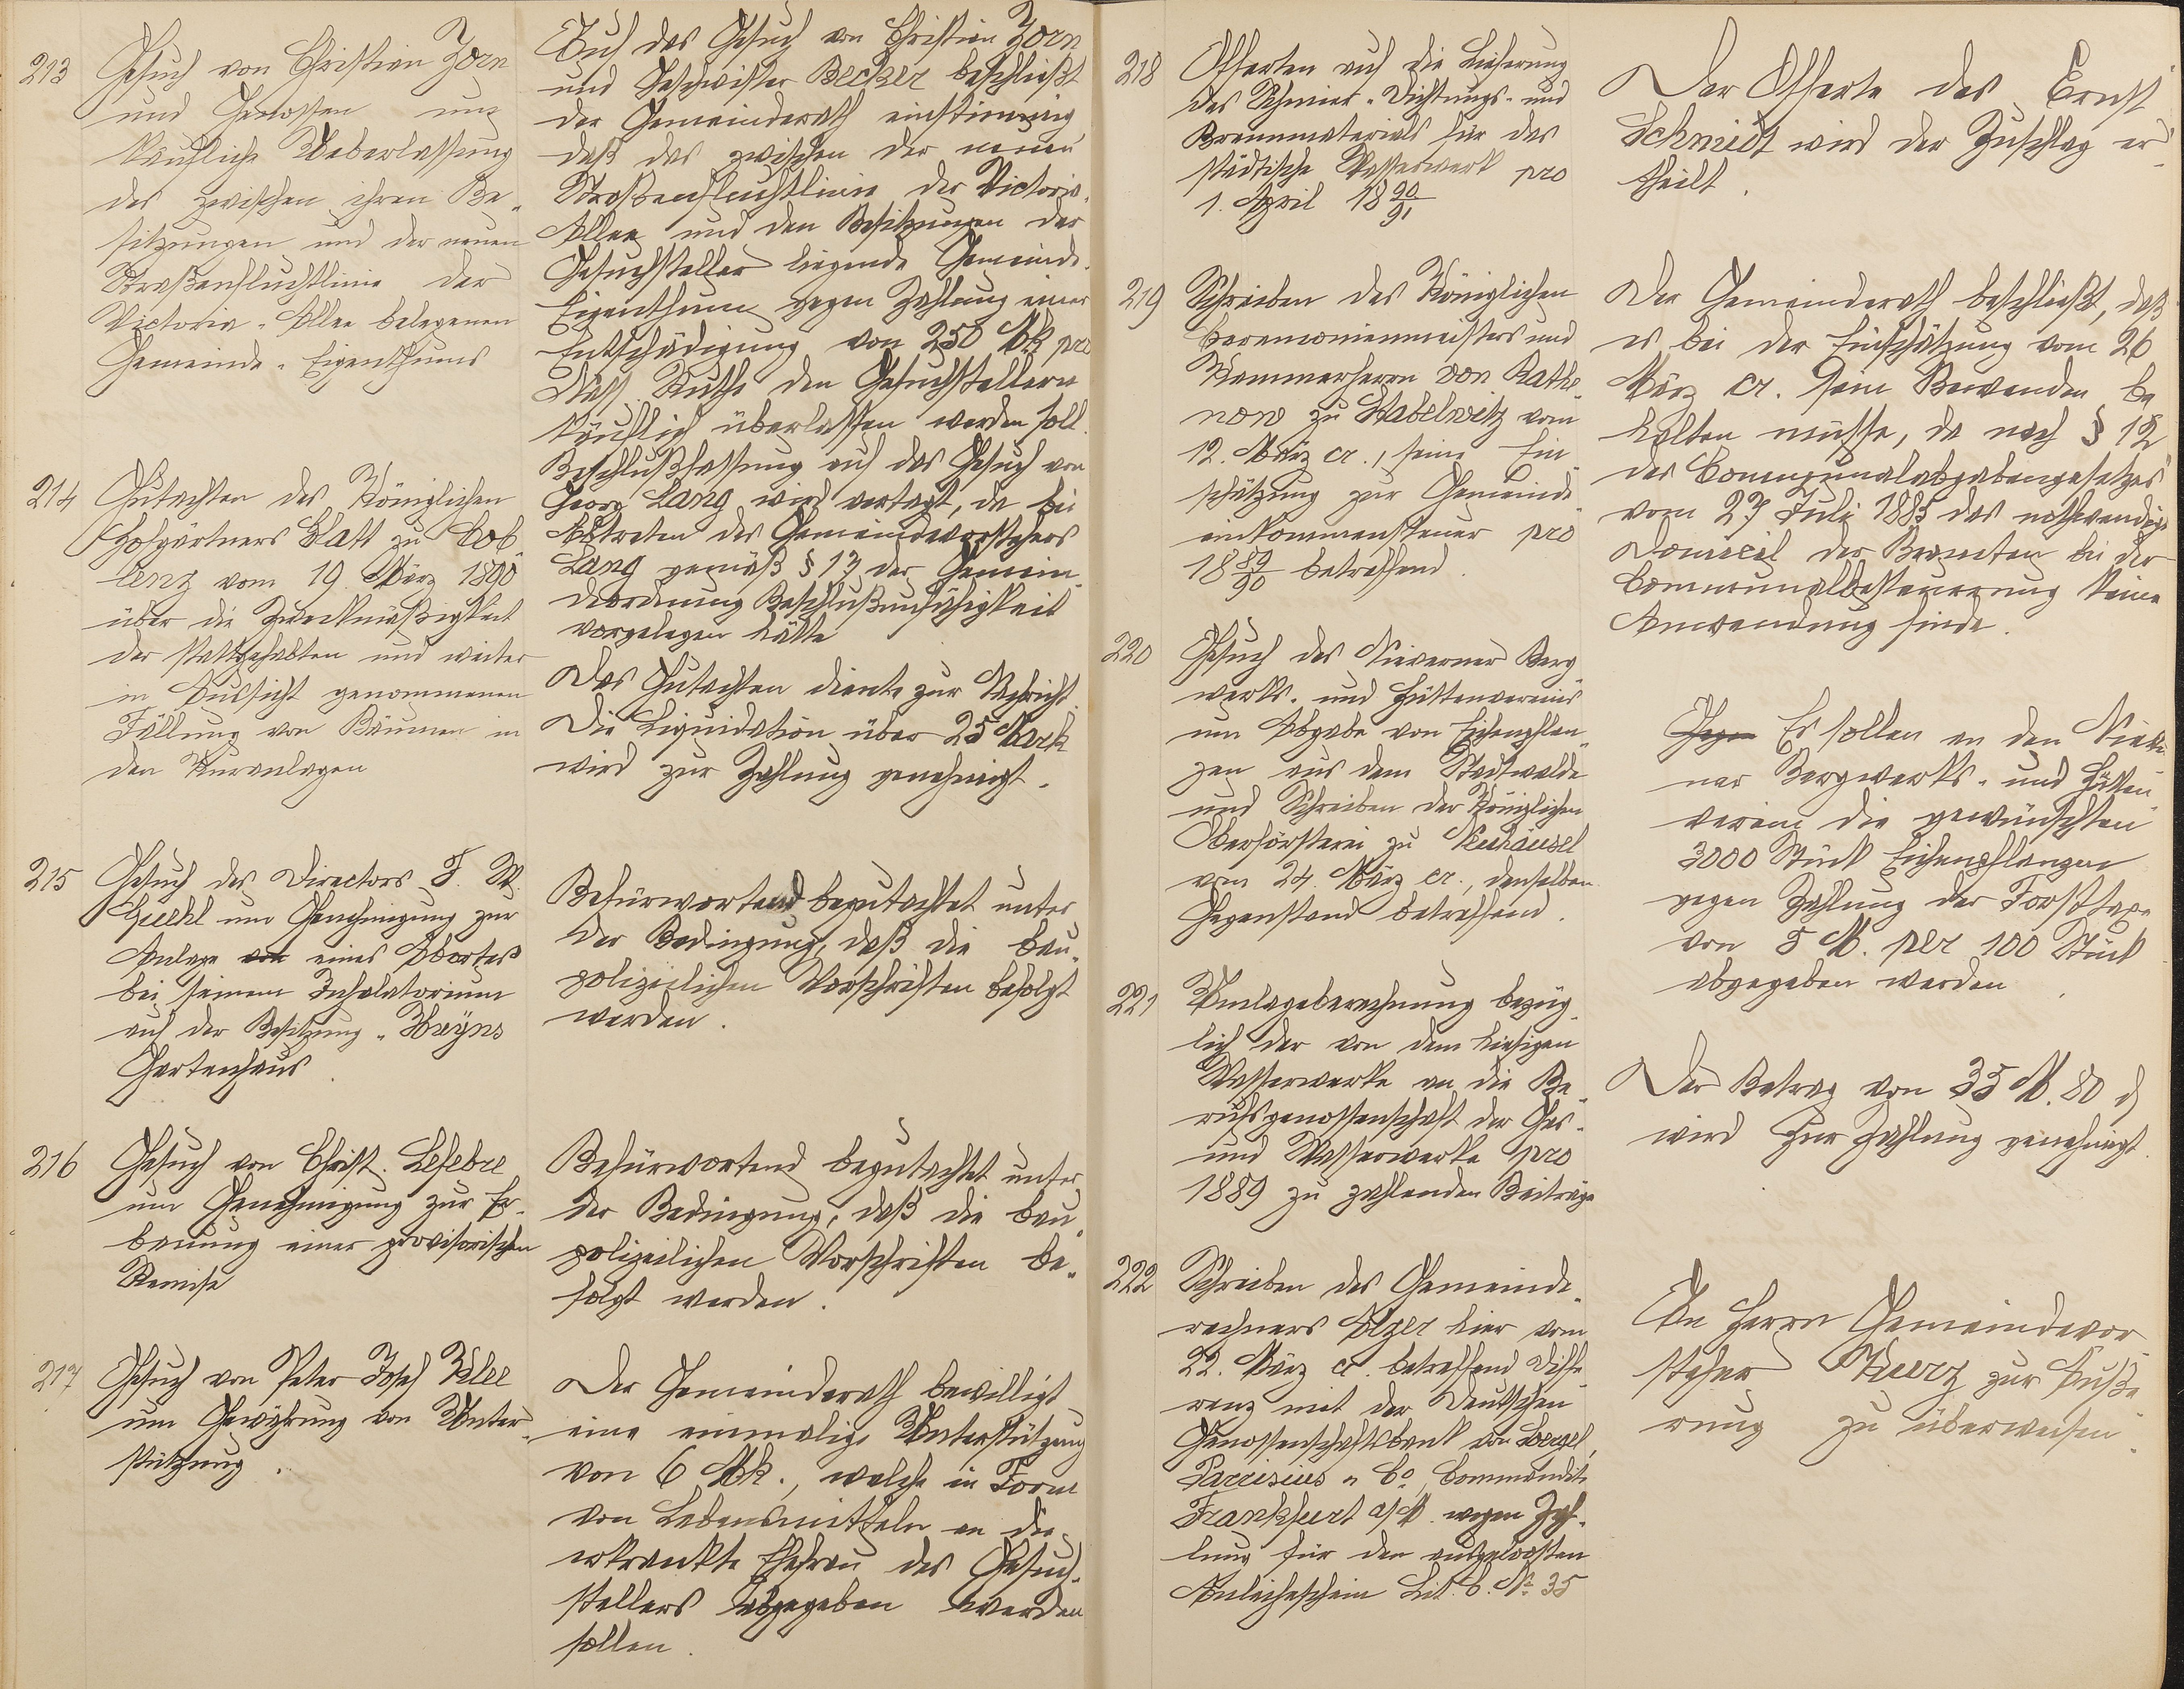 213
Gesuch von Christian Zorn
und Genossen um
käufliche Ueberlassung
des zwischen ihren Be-
sitzungen und der neuen
Straßenfluchtlinie der
Victoria-Allee belegenen
Gemeinde-Eigenthums
Auf das Gesuch von Christian Zorn
und Geschwister Becker beschließt
der Gemeinderath einstimmig
daß das zwischen der neuen
Straßenfluchtlinie der Victoria-
Allee und den Besitzungen der
Gesuchsteller liegende Gemeinde-
Eigenthum gegen Zahlung einer
Entschädigung von 250 Mk pro
Nass. Ruthe den Gesuchstellern
käuflich überlassen werden soll.
Beschlußfassung auf das Gesuch von
Georg Lang wird vertagt, da bei
Abtreten des Gemeindevorstehers
Lang gemäß § 17 der Gemein-
deordnung Beschlußunfähigkeit
vorgelegen hätte
214
Gutachten des Königlichen
Hofgärtners Glatt zu Cob-
lenz vom 19. März 1890
über die Zweckmäßigkeit
der stattgehabten und weiter
in Aussicht genommenen
Fällung von Bäumen in
den Kuranlagen
Das Gutachten diente zur Nachricht.
Die Liquidation über 25 Mark
wird zur Zahlung genehmigt.
215
Gesuch des Directors F. W.
um Genehmigung zur
Anlage von eines Abortes
bei seinem Inhalatorium
auf der Besitzung "Heyns
Gartenhaus
Befürwortend begutachtet unter
der Bedingung, daß die bau-
polizeilichen Vorschriften befolgt
werden.
216
Gesuch von Christ. Lefebre
um Genehmigung zur Er-
bauung einer provisorischen
Remise
Befürwortend begutachtet unter
der Bedingung, daß die bau-
polizeilichen Vorschriften be-
folgt werden.
217
Gesuch von Peter Josef Klee
um Gewährung von Unter-
stützung.
Der Gemeinderath bewilligt
eine einmalige Unterstützung
von 6 Mk., welche in Form
von Lebensmitteln an die
erkrankte Ehefrau des Gesuch-
stellers abgegeben werden
sollen.
218
Offerten auf die Lieferung
des Schmier-Dichtungs- und
Brennmaterials für das
städtische Wasserwerk pro
1. April 1890/91
Der Offerte des Ernst
Schmidt wird der Zuschlag er-
theilt.
219
Schreiben des Königlichen
Ceremonienmeisters und
Kammerherrn von Rathe-
now zu Habelwitz vom
12. März cr., seine Ein-
schätzung zur Gemeinde-
einkommensteuer pro
1889/90 betreffend.
Der Gemeinderath beschließt, daß
es bei der Einschätzung vom 26
März cr. sein Bewenden be-
halten müsse, da nach § 12
des Communalabgabengesetzes
vom 27 Juli 1885 das nothwendige
Domicil der Beamten bei der
Communalbesteuerung keine
Anwendung finde.
220
Gesuch des Nieverner Berg-
werks- und Hüttenvereins
um Abgabe von Eichenpflan-
zen aus dem Stadtwalde
und Schreiben der Königlichen
Oberförsterei zu Neuhäusel
vom 24. März cr., denselben
Gegenstand betreffend.
Gegen Es sollen an den Niever-
ner Bergwerks- und Hütten-
verein die gewünschten
3000 Stück Eichenpflanzen
gegen Zahlung der Forsttaxe
von 5 M. per 100 Stück
abgegeben werden.
221
Umlageberechnung bezüg-
lich der von dem hiesigen
Wasserwerke an die Be-
rufsgenossenschaft der Gas-
und Wasserwerke pro
1889 zu zahlenden Beiträge
Der Betrag von 35 M. 80 d
wird zur Zahlung genehmigt.
222
Schreiben des Gemeinde-
rechners Alzer hier vom
22. März cr. betreffend Diffe-
renz mit der Deutschen
Genossenschaftsbank von Soergel,
Parrisius u Co, Commandite
Frankfurt a/M. wegen Zah-
lung für den ausgeloosten
Anleiheschein Lit. C. No 35
An Herrn Gemeindevor-
steher Kurz zur Äuße-
rung zu überweisen.